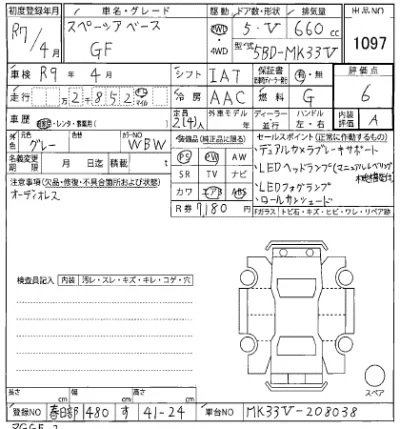 初度登録年月 車名・グレード 駆動 ドア数・形状 排気量 出品NO
R7/4月 スペーシア ベース 2WD 5・V 660cc 1097
GF ・4WD 型式 5BD-MK33V
車検 R9年4月 シフト IAT 保証書 有・無 評価点
走行 万2千852 km マイル 冷房 AAC 燃料 G 6
車歴 自家・レンタ・事業用( ) 定員 2(4)人 外車モデル 年 ディーラー・並行 ハンドル 左・右 内装評価 A
色 元色 グレー 色替 カラーNO WBW 装備品(純正品に限る) セールスポイント(正常に作動するもの)
名義変更期限 月 日迄 積載 t PS PW AW ・デュアルカメラブレーキサポート
注意事項(欠品・修復・不具合箇所および状態) SR TV ナビ ・LEDヘッドランプ(マニュアルレベリング
オーディオレス カワ エアB ABS ・LEDフォグランプ
R券 7,180円 ・ロールサンシェード
Fガラス トビ石・キズ・ヒビ・ワレ・リペア跡
検査員記入 内装 汚レ・スレ・キズ・キレ・コゲ・穴
スペア
長さ cm 幅 cm 高さ cm
登録NO 春日部 480 す 41-24 車台NO MK33V-208038